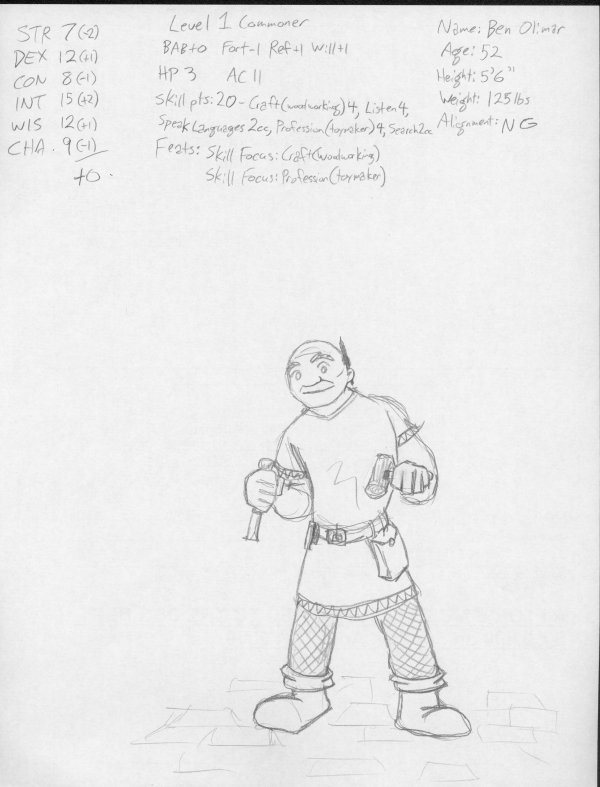 STR 7 (-2)
DEX 12 (+1)
CON 8 (-1)
INT 15 (+2)
WIS 12 (+1)
CHA. 9 (-1)
+0.
Level 1 Commoner
BAB+0 Fort-1 Ref+1 Will+1
HP 3 AC 11
Skill pts: 20 - Craft(woodworking) 4, Listen 4,
Speak Languages 2cc, Profession(toymaker) 4, Search 2cc
Feats: Skill Focus: Craft(woodworking)
Skill Focus: Profession(toymaker)
Name: Ben Olimar
Age: 52
Height: 5'6"
Weight: 125 lbs
Alignment: NG